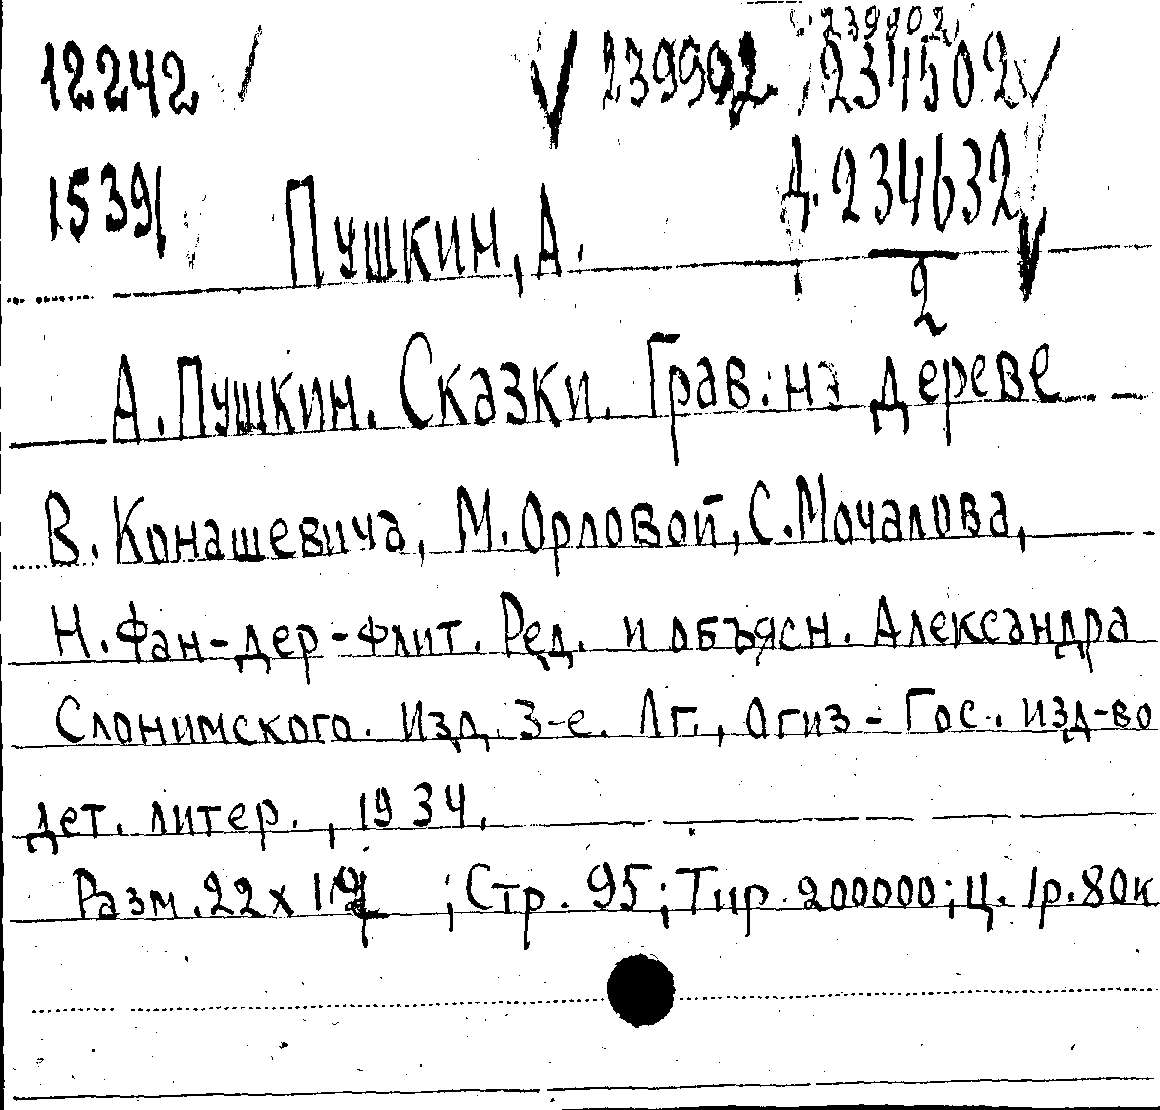 239902
12242 239902 234502
15391 Д. 234632
Пушкин, А.
2
А. Пушкин. Сказки. Грав. на дереве
В. Конашевича, М. Орловой, С. Мочалова,
Н. Фан-дер-Флит. Ред. и объясн. Александра
Слонимского. Изд. 3-е. Лг., Огиз - Гос. изд-во
дет. литер., 1934.
Разм. 22 х ; Стр. 95; Тир. 200000; Ц. 1р. 80к